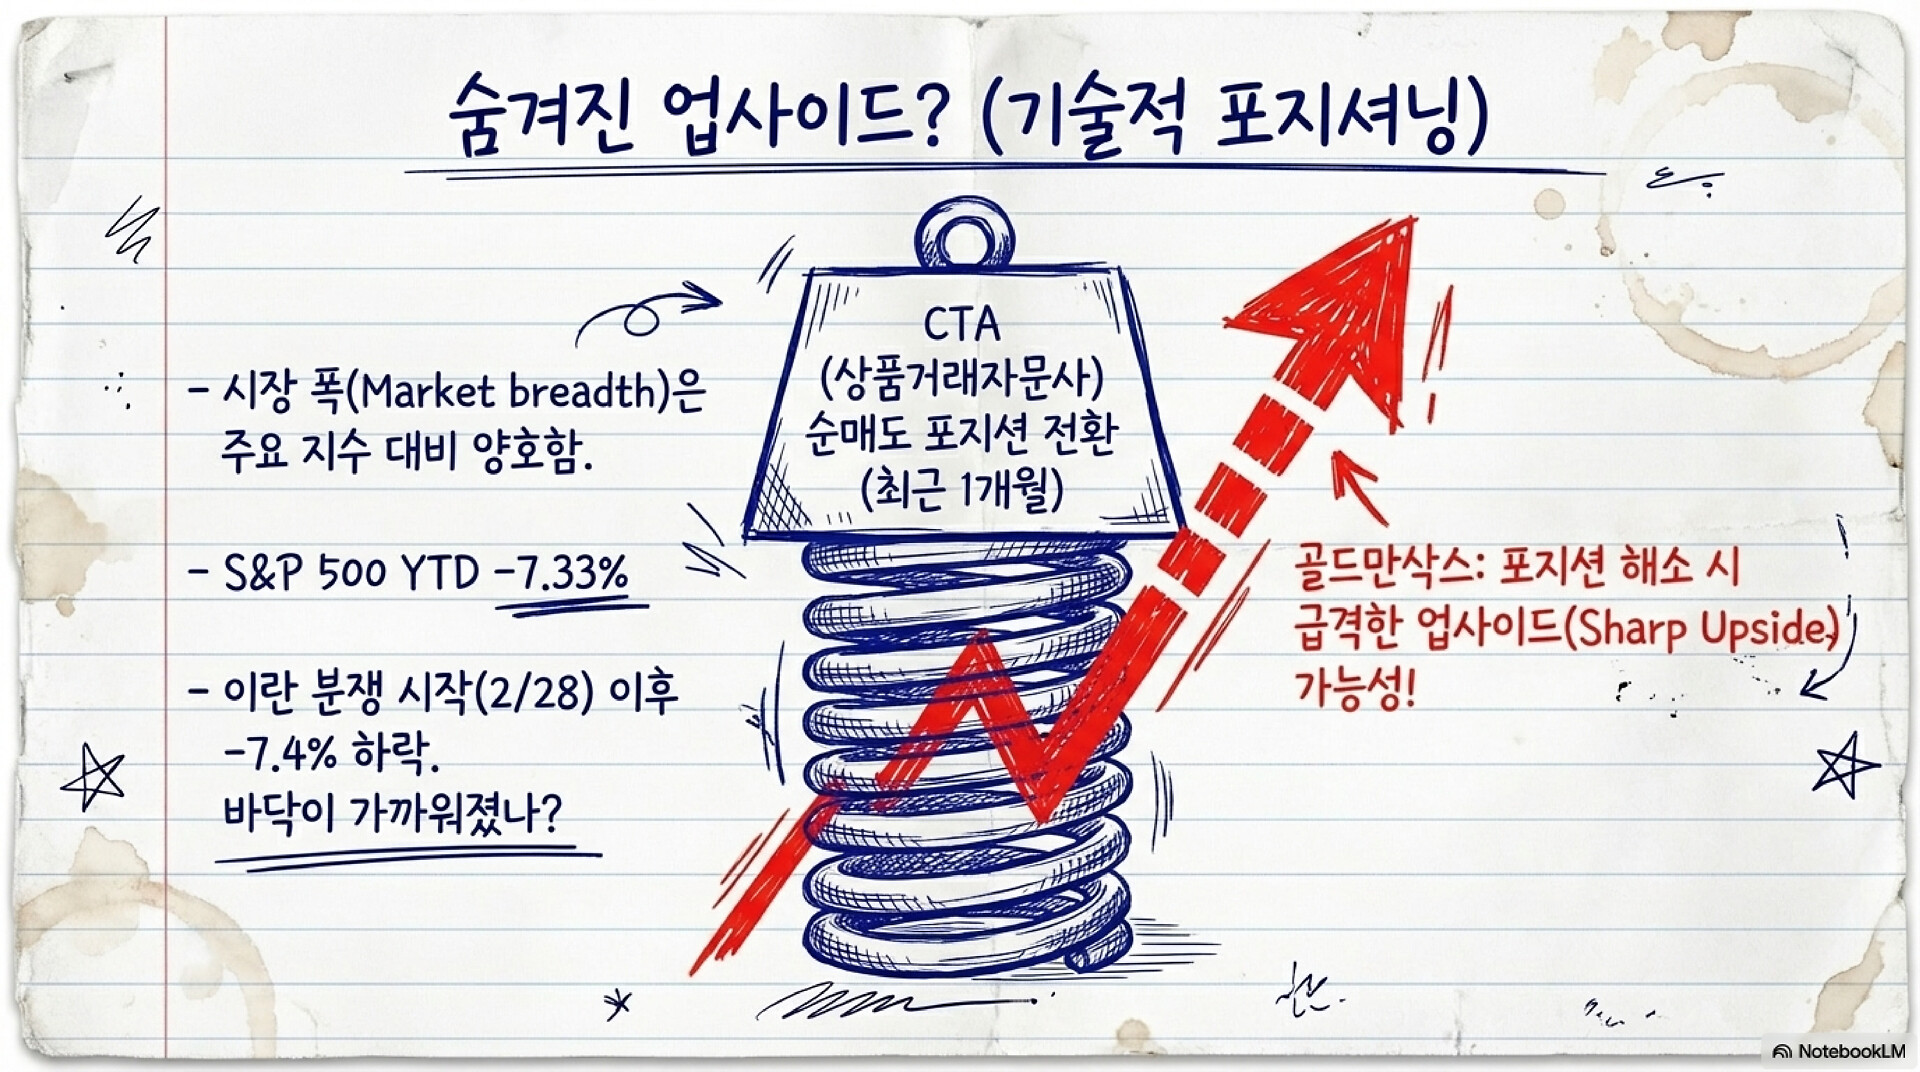 숨겨진 업사이드? (기술적 포지셔닝)
- 시장 폭(Market breadth)은
주요 지수 대비 양호함.
- S&P 500 YTD -7.33%
- 이란 분쟁 시작(2/28) 이후
-7.4% 하락.
바닥이 가까워졌나?
CTA
(상품거래자문사)
순매도 포지션 전환
(최근 1개월)
골드만삭스: 포지션 해소 시
급격한 업사이드(Sharp Upside)
가능성!
NotebookLM